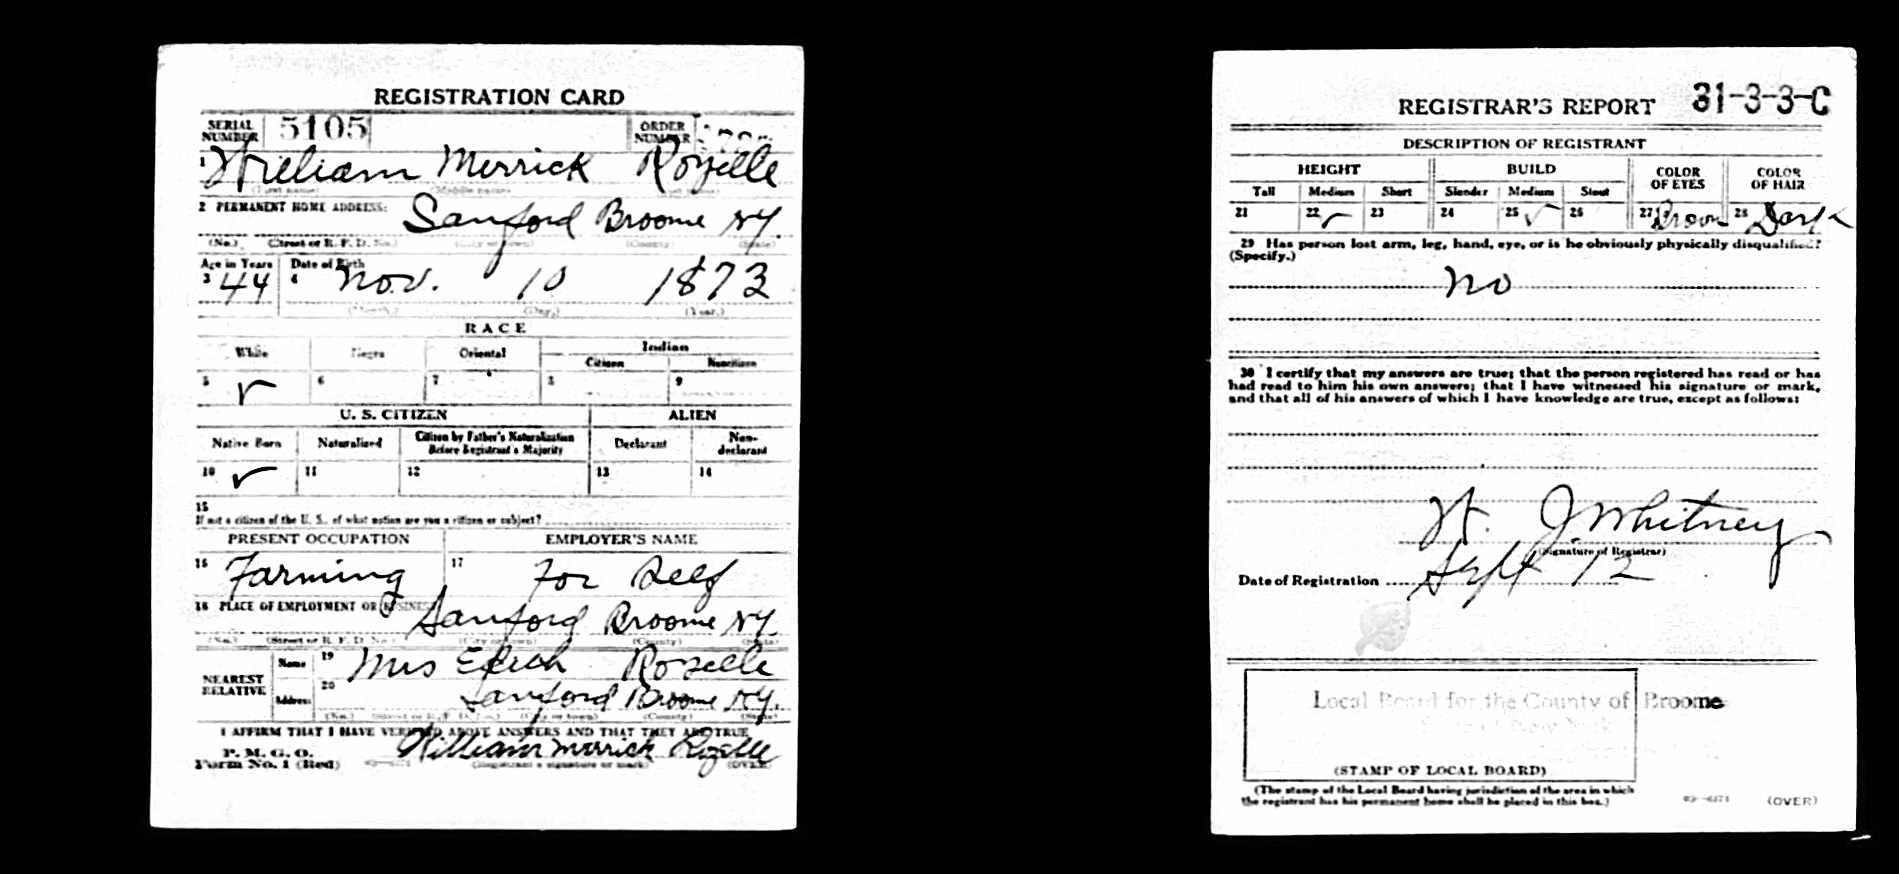 REGISTRATION CARD
SERIAL NUMBER 5105 ORDER NUMBER
1 William Merrick Rozelle
(First name) (Middle name) (Last name)
2 PERMANENT HOME ADDRESS: Sanford Broome NY.
(No.) (Street or R. F. D. No.) (City or town) (County) (State)
Age in Years Date of Birth
3 44 4 Nov. 10 1873
(Month.) (Day.) (Year.)
RACE
White Negro Oriental Indian
Citizen Noncitizen
5 ✓ 6 7 8 9
U. S. CITIZEN ALIEN
Native Born Naturalized Citizen by Father's Naturalization Before Registrant's Majority Declarant Non-declarant
10 ✓ 11 12 13 14
15
If not a citizen of the U. S., of what nation are you a citizen or subject?
PRESENT OCCUPATION EMPLOYER'S NAME
16 Farming 17 For Self
18 PLACE OF EMPLOYMENT OR BUSINESS Sanford Broome NY.
(No.) (Street or R. F. D. No.) (City or town) (County) (State)
NEAREST RELATIVE Name 19 Mrs Rozelle
Address 20 Sanford Broome NY.
(No.) (Street or R. F. D. No.) (City or town) (County) (State)
I AFFIRM THAT I HAVE VERIFIED ABOVE ANSWERS AND THAT THEY ARE TRUE
P. M. G. O.
Form No. 1 (Red) William Merrick Rozelle
(Registrant's signature or mark) (OVER)
REGISTRAR'S REPORT 31-3-3-C
DESCRIPTION OF REGISTRANT
HEIGHT BUILD COLOR OF EYES COLOR OF HAIR
Tall Medium Short Slender Medium Stout
21 22 ✓ 23 24 25 ✓ 26 27 Brown 28 Dark
29 Has person lost arm, leg, hand, eye, or is he obviously physically disqualified?
(Specify.)
No
30 I certify that my answers are true; that the person registered has read or has
had read to him his own answers; that I have witnessed his signature or mark,
and that all of his answers of which I have knowledge are true, except as follows:
J Whitney
(Signature of Registrar)
Date of Registration Sept 12
Local Board for the County of Broome
State of New York
(STAMP OF LOCAL BOARD)
(The stamp of the Local Board having jurisdiction of the area in which
the registrant has his permanent home shall be placed in this box.)
(OVER)